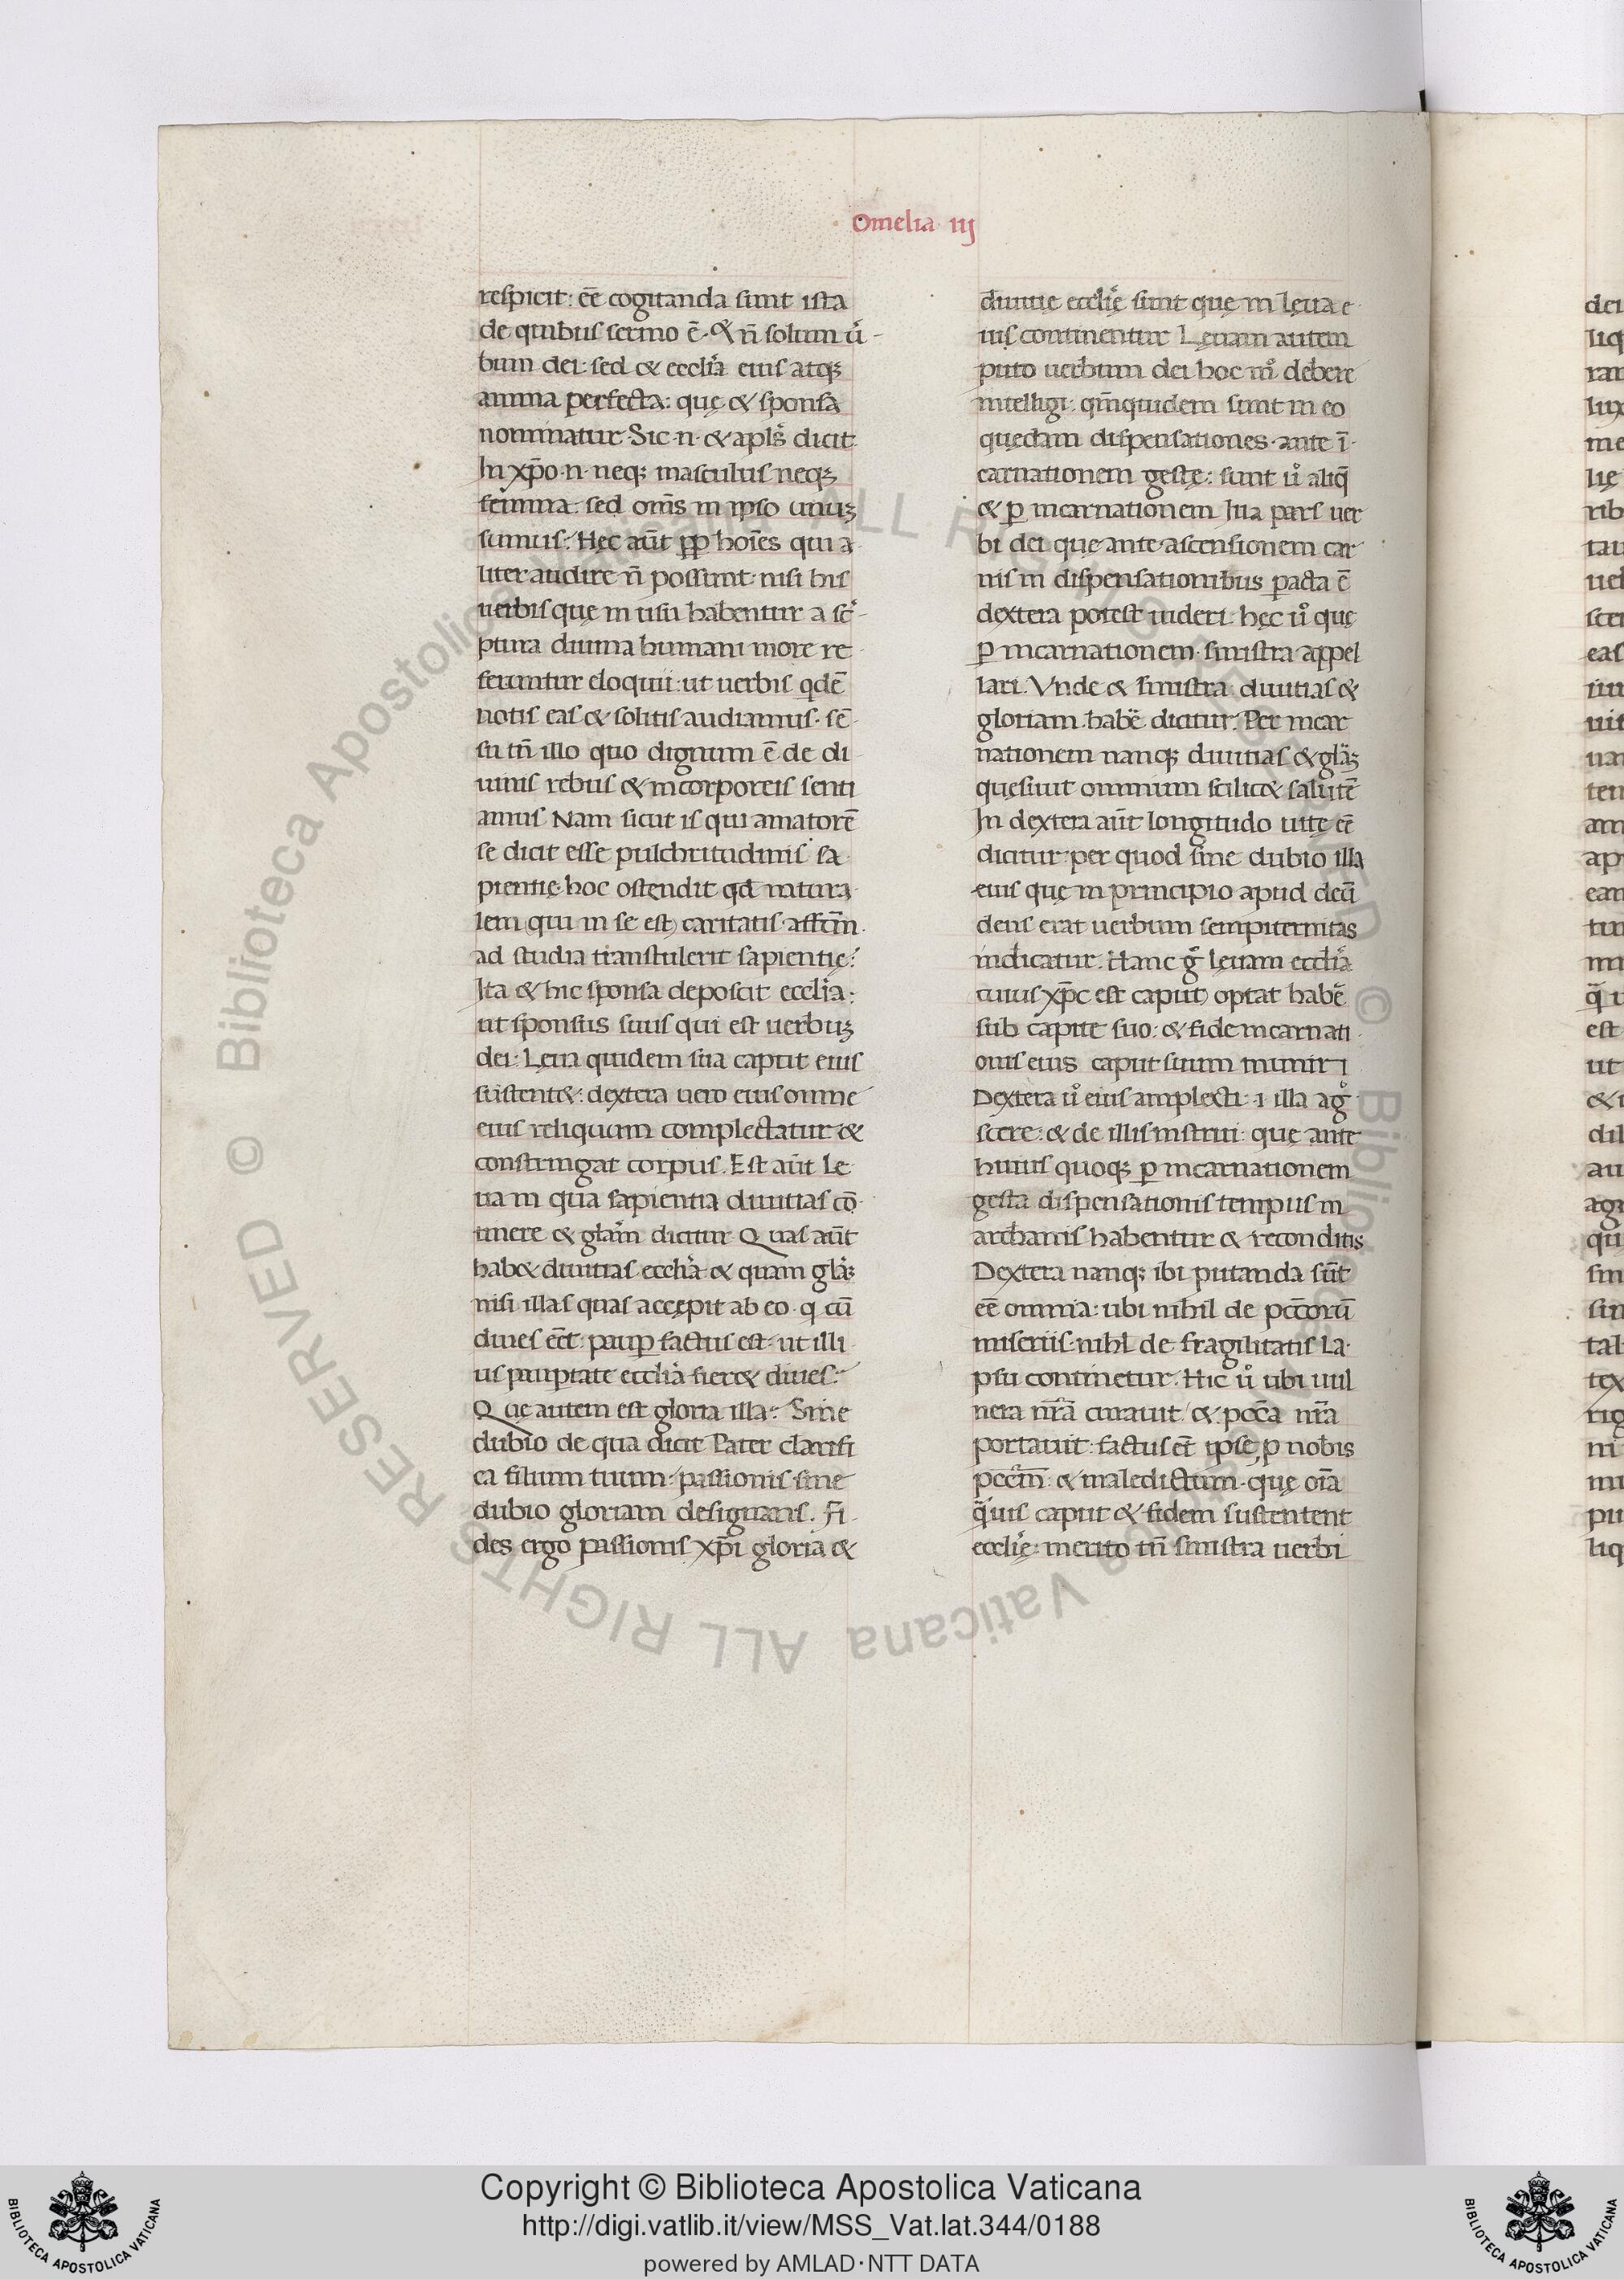 Omelia iij
respicit: eē cogitanda sunt ista
de quibus sermo ē. & n̄ solum ū-
bum dei: sed & eccl̄ia eius atq;
anima perfecta: quę & sponsa
nominatur. Sic .n. & apl̄s dicit
In xp̄o .n. neq; masculus neq;
femina: sed om̄s in ipso unuȝ
sumus. Hęc aūt pp̄ hoīes qui a
liter audire n̄ possunt: nisi his
uerbis quę in usu habentur a sc̄-
ptura diuina humani more re
feruntur eloquii: ut uerbis qdē
notis eas & solitis audiamus. sē-
su tn̄ illo quo dignum ē de di
uinis rebus & incorporeis senti
amus Nam sicut is qui amatorē
se dicit esse pulchritudinis sa
pientię hoc ostendit qd̄ natura
lem (qui in se est) caritatis affcm̄
ad studia transtulerit sapientię:
Ita & hic sponsa deposcit eccl̄ia:
ut sponsus suus qui est uerbuȝ
dei: Leua quidem sua caput eius
sustent&: dextera uero eius omne
eius reliquum complectatur &
constringat corpus. Est aūt Le
ua in qua sapientia diuitias cō-
tinere & glām dicitur Quas aūt
hab& diuitias eccl̄ia & quam glāȝ
nisi illas quas accępit ab eo. q cū
diues eēt: paup̄ factus est: ut illi
us paup̄tate eccl̄ia fier& diues:
Quę autem est gloria illa: Sine
dubio de qua dicit Pater clarifi
ca filium tuum: passionis sine
dubio gloriam designans. Fi-
des ergo passionis xp̄i gloria &
diuitię eccl̄ię sunt quę in leua e
ius continentur Lęuam autem
puto uerbum dei hoc m̊ debere
intelligi: qm̄quidem sunt in eo
quędam dispensationes ante ī-
carnationem gestę: sunt ů aliq̄
& p̄ incarnationem Illa pars uer
bi dei quę ante ascensionem car
nis in dispensationibus pacta ē
dextera potest uideri: hęc ů quę
p̄ incarnationem sinistra appel
lari. Vnde & sinistra diuitias &
gloriam habē dicitur. Per incar
nationem nanq; diuitias & glāȝ
quęsiuit omnium scilic& salutē
In dextera aūt longitudo uitę eē
dicitur: per quod sine dubio illa
eius quę in principio apud deū
deus erat uerbum sempiternitas
indicatur. Hanc g̊ lęuam eccl̄ia
cuius xp̄c est caput) optat habē
sub capite suo: & fide incarnati
onis eius caput suum muniri
Dextera ů eius amplecti: .i. illa ag̊
scere: & de illis instrui: quę ante
huius quoq; p̄ incarnationem
gesta dispensationis tempus in
archanis habentur & reconditis
Dextera nanq; ibi putanda sūt
eē omnia: ubi nihil de pcc̄orū
miseriis: nihl de fragilitatis la-
psu continetur. Hic ů ubi uul
nera nr̄a curauit / & pcc̄a nr̄a
portauit: factus ēt ipse p nobis
pcc̄m: & maledictum. quę oīa
q̄uis caput & fidem sustentent
eccl̄ię: merito tn̄ sinistra uerbi
Copyright © Biblioteca Apostolica Vaticana
http://digi.vatlib.it/view/MSS_Vat.lat.344/0188
powered by AMLAD·NTT DATA